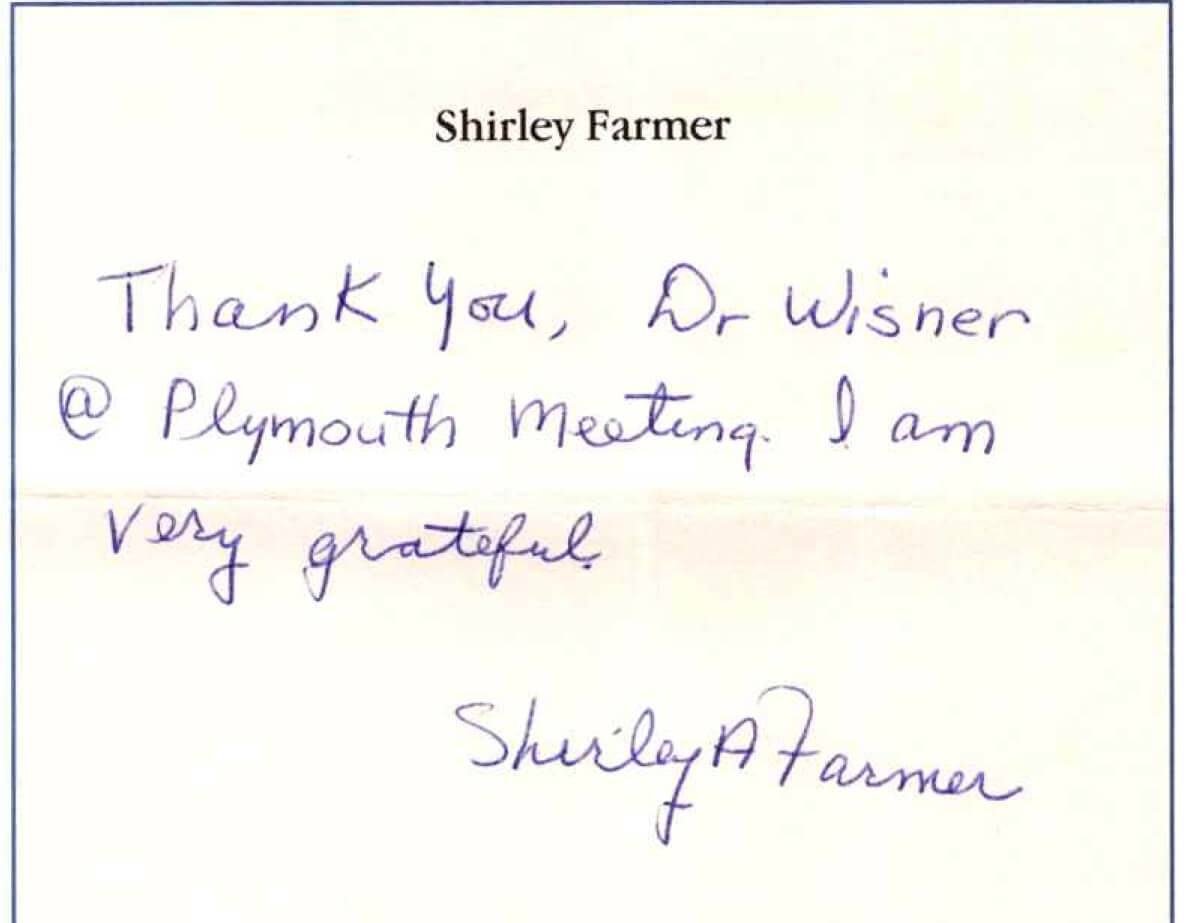 Shirley Farmer
Thank You, Dr Wisner
@ Plymouth Meeting. I am
very grateful.
Shirley A Farmer